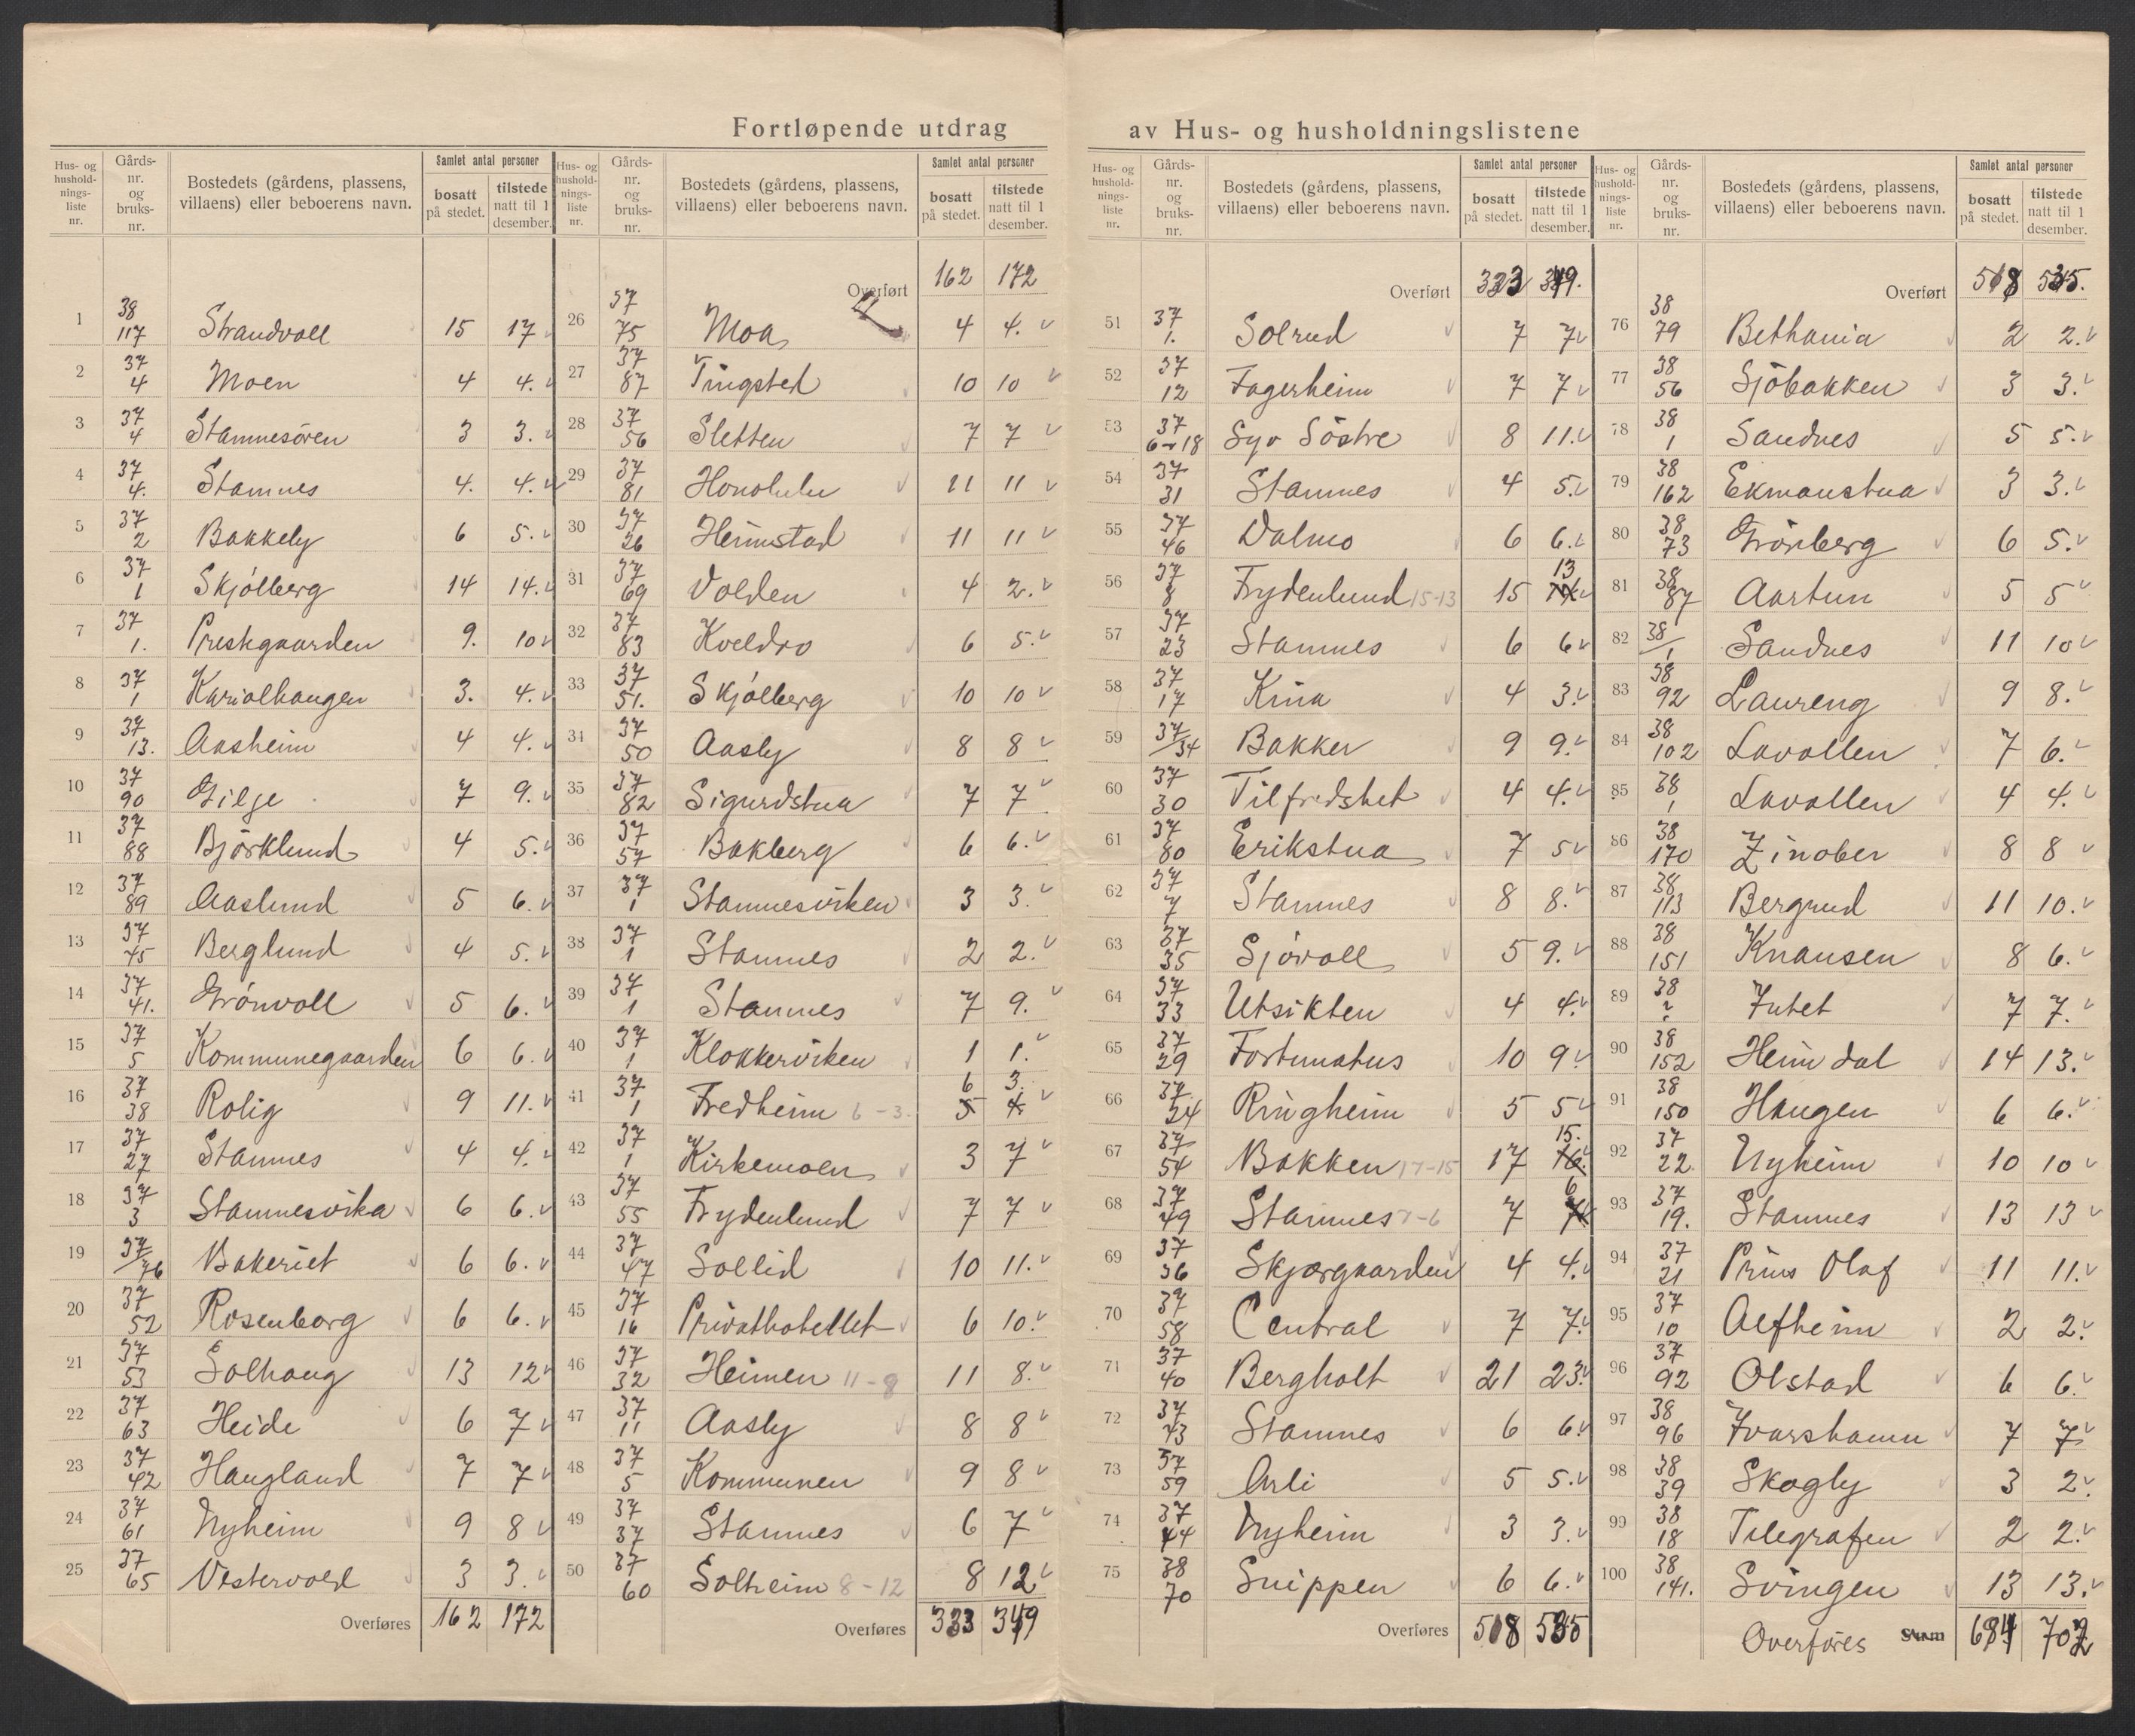 Fortløpende utdrag av Hus- og husholdningslistene
Hus- og hushold-nings-liste nr. | Gårds-nr. og bruks-nr. | Bostedets (gårdens, plassens, villaens) eller beboerens navn. | Samlet antal personer | bosatt på stedet. | tilstede natt til 1 desember.
1 38/117 Strandvoll 15 17
2 37/4 Moen 4 4.
3 37/4 Stamnesøren 3 3.
4 37/4. Stamnes 4. 4.
5 37/2 Bakkely 6 5.
6 37/1 Skjölberg 14 14.
7 37/1. Prestgaarden 9. 10
8 37/1 Karialhaugen 3. 4.
9 37/13. Aasheim 4 4.
10 37/90 Gilje 7 9.
11 37/88 Björklund 4 5.
12 37/89 Aaslund 5 6.
13 37/45 Berglund 4 5.
14 37/41. Grönvoll 5 6.
15 37/5 Kommunegaarden 6 6.
16 37/38 Rolig 9 11.
17 37/27 Stamnes 4 4.
18 37/3 Stamnesvika 6 6.
19 37/76 Bakeriet 6 6.
20 37/52 Rosenborg 6 6.
21 37/53 Solhaug 13 12
22 37/63 Heide 6 7
23 37/42 Haugland 7 7
24 37/61 Nyheim 9 8
25 37/65 Vestervold 3 3.
Overføres 162 172
Hus- og hushold-nings-liste nr. | Gårds-nr. og bruks-nr. | Bostedets (gårdens, plassens, villaens) eller beboerens navn. | Samlet antal personer | bosatt på stedet. | tilstede natt til 1 desember.
Overført 162 172
26 37/75 Moa 4 4.
27 37/87 Tingsted 10 10
28 37/56 Sletten 7 7
29 37/81 Honolulu 11 11
30 37/26 Heimstad 11 11
31 37/69 Volden 4 2.
32 37/83 Kveldro 6 5.
33 37/51. Skjölberg 10 10
34 37/50 Aasly 8 8
35 37/82 Sigurdstua 7 7
36 37/57 Bakberg 6 6.
37 37/1 Stamnesviken 3 3.
38 37/1 Stamnes 2 2.
39 37/1 Stamnes 7 9.
40 37/1 Klokkerviken 1 1.
41 37/1 Fredheim 6-3. 6 3. 5 4.
42 37/1 Kirkemoen 3 7
43 37/55 Frydenlund 7 7
44 37/47 Sollid 10 11.
45 37/16 Privathotellet 6 10.
46 37/32 Heimen 11-8 11 8.
47 37/11 Aasly 8 8
48 37/5 Kommunen 9 8
49 37/37 Stamnes 6 7
50 37/60 Solheim 8-12 8 12
Overføres 333 349
Hus- og hushold-nings-liste nr. | Gårds-nr. og bruks-nr. | Bostedets (gårdens, plassens, villaens) eller beboerens navn. | Samlet antal personer | bosatt på stedet. | tilstede natt til 1 desember.
Overført 333 349.
51 37/1. Solrud 7 7
52 37/12 Fagerheim 7 7
53 37/6-18 Syv Söstre 8 11.
54 37/31 Stamnes 4 5.
55 37/46 Dalmo 6 6.
56 37/8 Frydenlund 15-13 15 13
57 37/23 Stamnes 6 6
58 37/17 Kina 4 3.
59 37/34 Bakker 9 9.
60 37/30 Tilfredshet 4 4.
61 37/80 Erikstua 7 5
62 37/7 Stamnes 8 8.
63 37/35 Sjövoll 5 9.
64 37/33 Utsikten 4 4.
65 37/29 Fortunatus 10 9.
66 37/24 Ringheim 5 5
67 37/54 Bakken 17-15 17 15. 16.
68 37/49 Stamnes 7-6 7 6
69 37/36 Skjærgaarden 4 4.
70 37/58 Central 7 7.
71 37/40 Bergholt 21 23.
72 37/43 Stamnes 6 6.
73 37/59 Arli 5 5.
74 37/44 Nyheim 3 3.
75 38/70 Snippen 6 6.
Overføres 518 535
Hus- og hushold-nings-liste nr. | Gårds-nr. og bruks-nr. | Bostedets (gårdens, plassens, villaens) eller beboerens navn. | Samlet antal personer | bosatt på stedet. | tilstede natt til 1 desember.
Overført 518 535.
76 38/79 Bethania 2 2.
77 38/56 Sjöbakken 3 3.
78 38/1 Sandnes 5 5.
79 38/162 Ekmanstua 3 3.
80 38/73 Grönberg 6 5.
81 38/87 Aastun 5 5
82 38/1 Sandnes 11 10
83 38/92 Laureng 9 8.
84 38/102 Lavollen 7 6.
85 38/1 Lavollen 4 4.
86 38/170 Zinober 8 8
87 38/113 Bergrud 11 10.
88 38/151 Knausen 8 6.
89 38/? Jutet 7 7.
90 38/152 Heimdal 14 13.
91 38/150 Haugen 6 6.
92 37/22. Nyheim 10 10
93 37/19. Stamnes 13 13
94 37/21 Prins Olaf 11 11.
95 37/10 Alfheim 2 2.
96 37/92 Olstad 6 6.
97 38/96 Ivarshamn 7 7
98 38/39 Skogly 3 2.
99 38/18 Telegrafen 2 2.
100 38/141. Svingen 13 13.
Overføres Sum 684 702